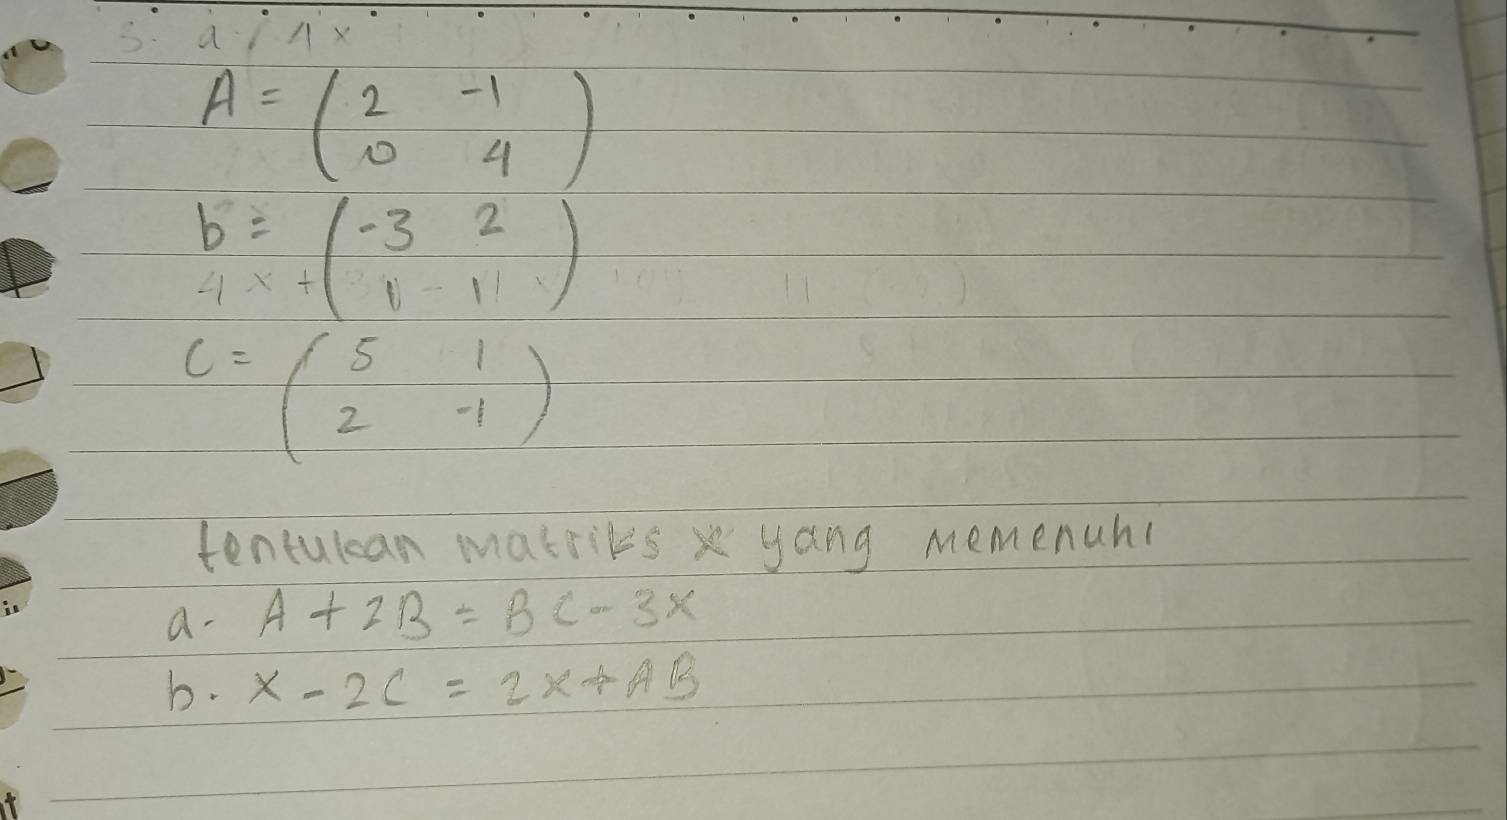 3. a. 4x
A = ( 2 -1
0 4 )
b = ( -3 2
4x + )
C = ( 5 1
2 -1 )
tentukan matriks x yang memenuhi
a. A + 2B = BC - 3x
b. x - 2C = 2x + AB